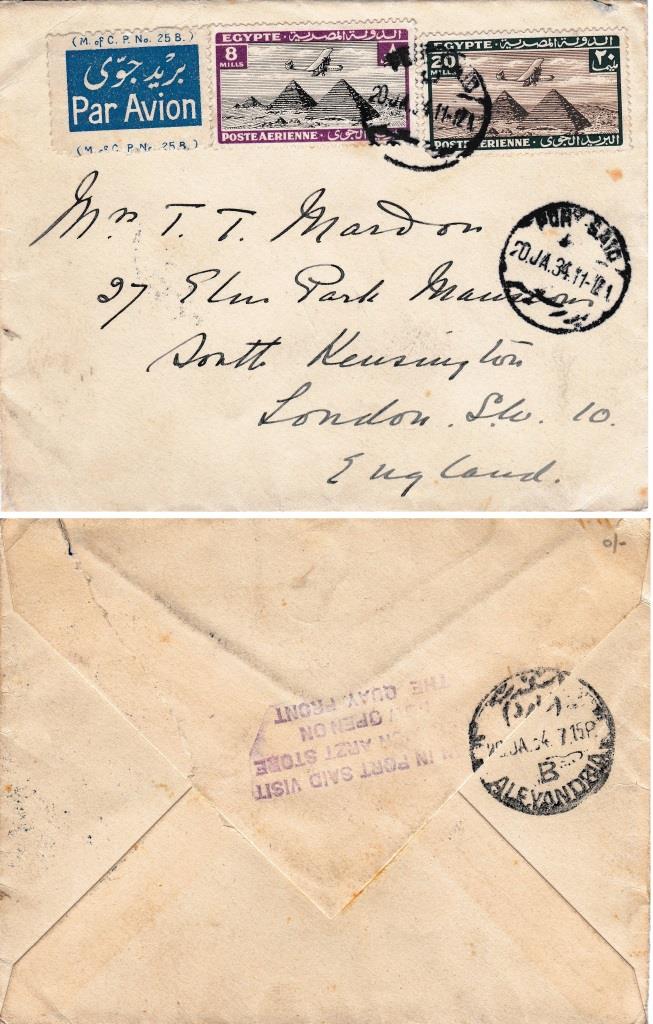 (M. of C. P. No. 25 B.)
بريد جوى
Par Avion
(M. of C. P. No. 25 B.)
EGYPTE الدولة المصرية
8
MILLS
٨
POSTE AERIENNE البريد الجوى
EGYPTE الدولة المصرية
20
MILLS
٢٠
مليما
POSTE AERIENNE البريد الجوى
PORT SAID
20.JA.34.11-12
PORT SAID
20.JA.34.11-12
Mrs T. T. Mardon
27 Elm Park Mansions
South Kensington
London. S.W. 10.
England.
IN PORT SAID VISIT
ARZT STORE
OPEN ON
THE QUAY FRONT
JA.34. 7.15P
B
ALEXANDRIA